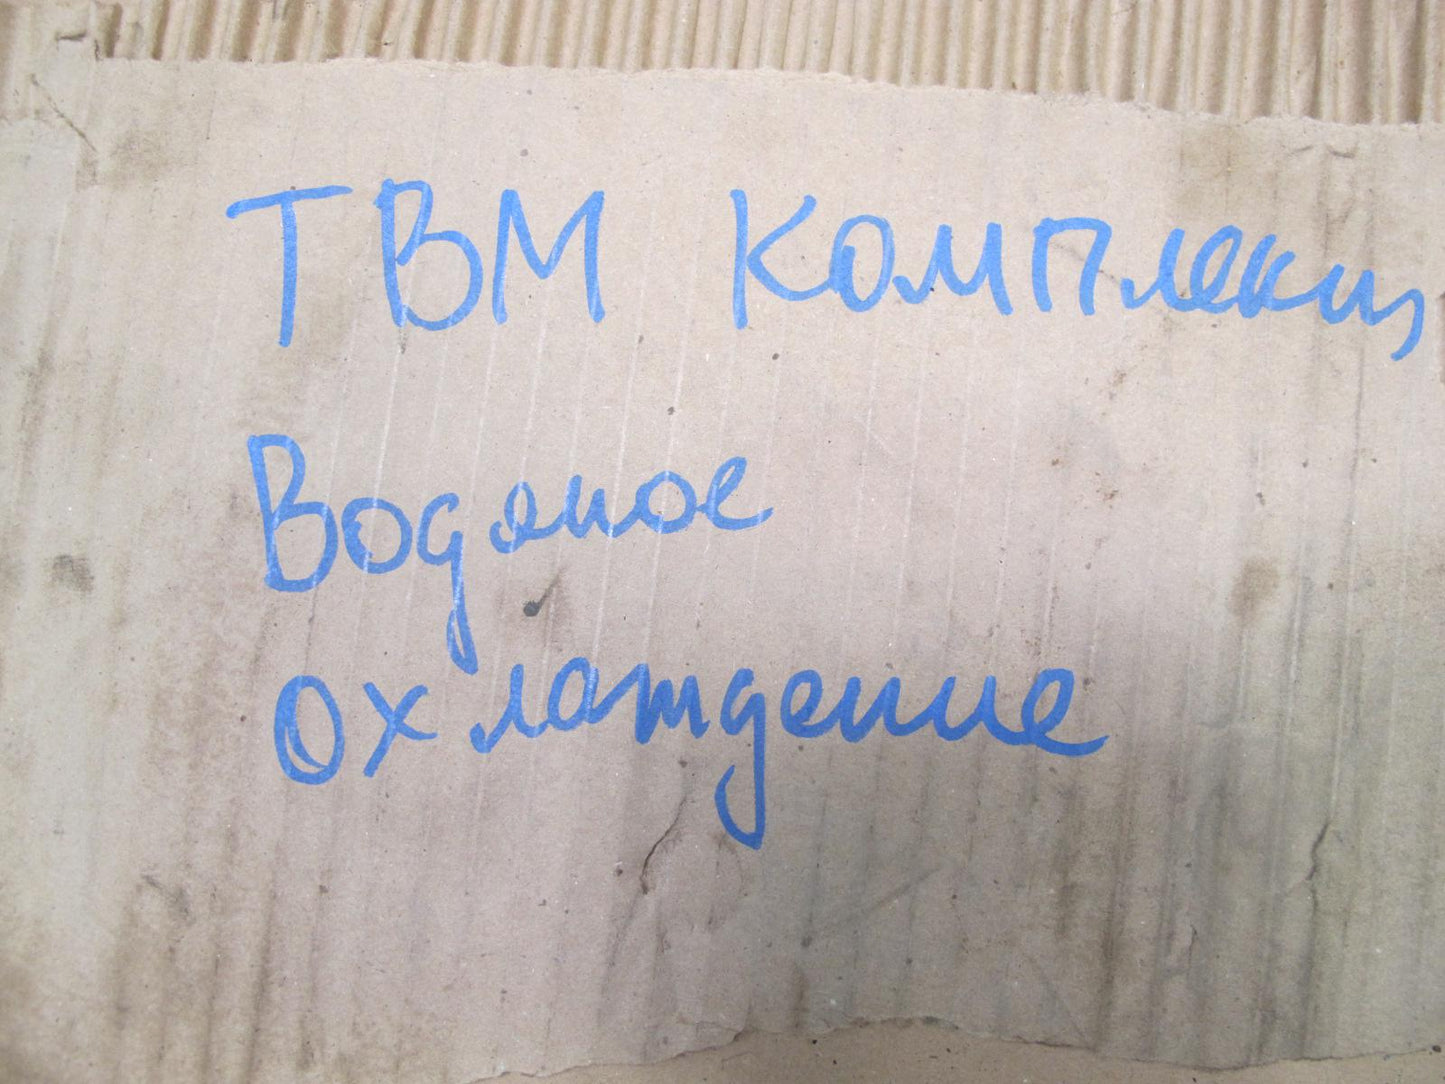 ТВМ Комплект
Водяное
охлаждение